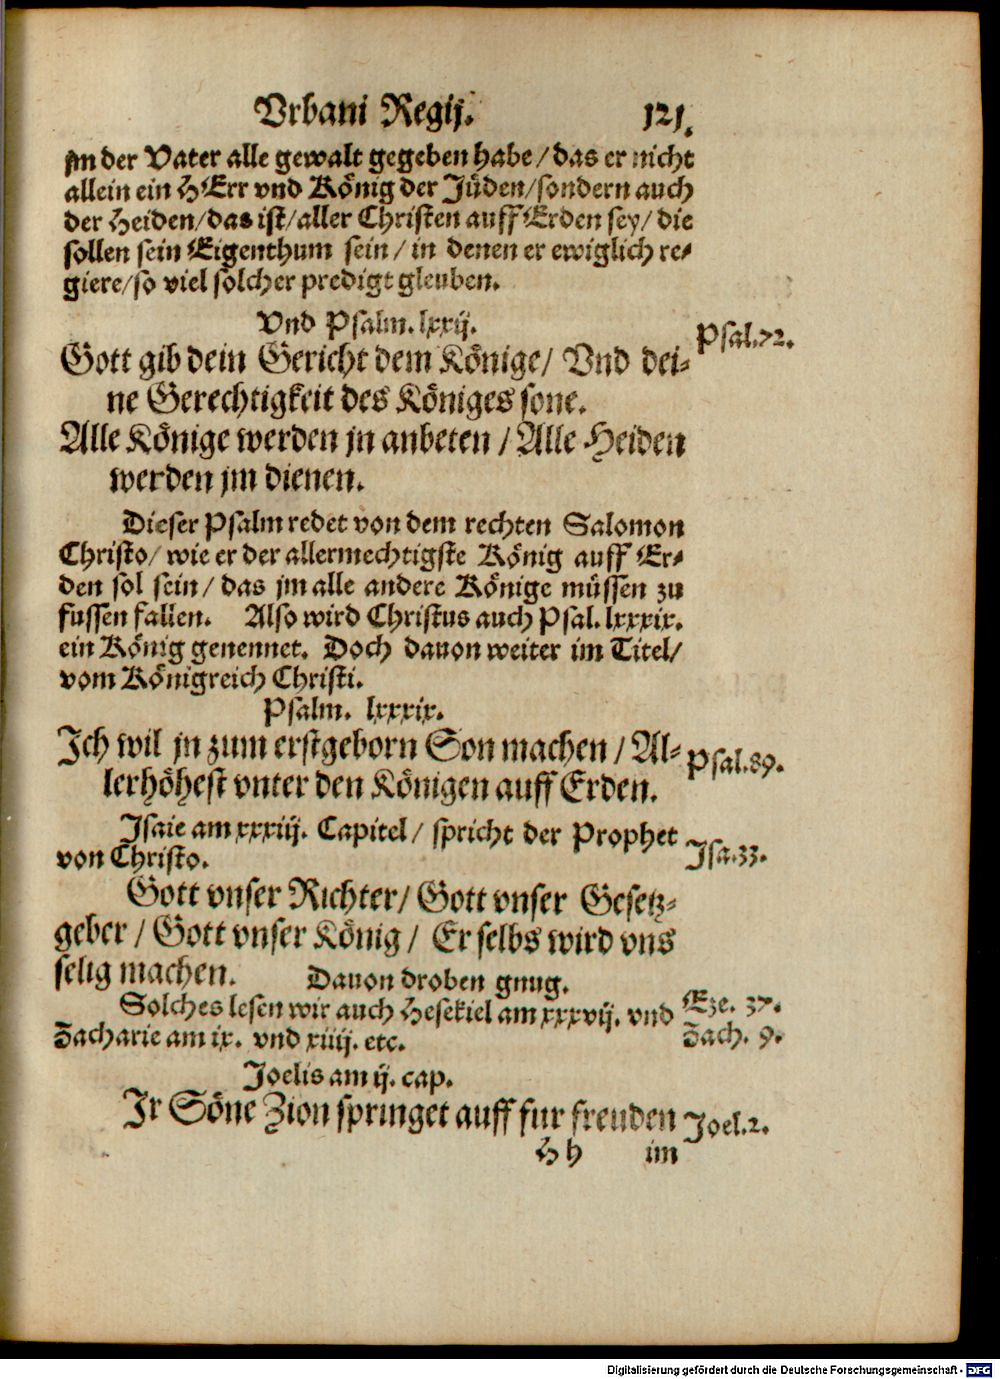 Vrbani Regij. 121.
jm der Vater alle gewalt gegeben habe/das er nicht
allein ein HErr vnd König der Jüden/sondern auch
der Heiden/das ist/aller Christen auff Erden sey/die
sollen sein Eigenthum sein/in denen er ewiglich re-
giere/so viel solcher predigt gleuben.
Vnd Psalm. lxxij.
Psal.72.
Gott gib dein Gericht dem Könige/ Vnd dei-
ne Gerechtigkeit des Königes sone.
Alle Könige werden jn anbeten/Alle Heiden
werden jm dienen.
Dieser Psalm redet von dem rechten Salomon
Christo/wie er der allermechtigste König auff Er-
den sol sein/das jm alle andere Könige müssen zu
fussen fallen. Also wird Christus auch Psal. lxxxix.
ein König genennet. Doch dauon weiter im Titel/
vom Königreich Christi.
Psalm. lxxxix.
Ich wil jn zum erstgeborn Son machen/Al-
Psal.89.
lerhöhest vnter den Königen auff Erden.
Isaie am xxxiij. Capitel/ spricht der Prophet
von Christo.
Isa.33.
Gott vnser Richter/Gott vnser Gesetz-
geber/Gott vnser König/ Er selbs wird vns
selig machen. Dauon droben gnug.
Solches lesen wir auch Hesekiel am xxxvij. vnd
Eze. 37.
Zacharie am ix. vnd xiiij. etc.
Zach. 9.
Joelis am ij. cap.
Ir Söne Zion springet auff fur freuden
Joel.2.
H h im
Digitalisierung gefördert durch die Deutsche Forschungsgemeinschaft - DFG